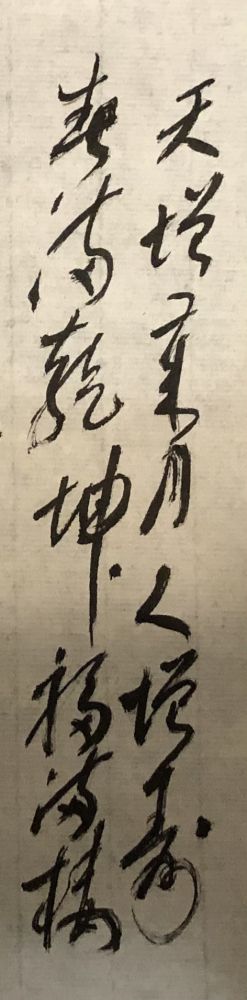 天增岁月人增寿
春满乾坤福满楼